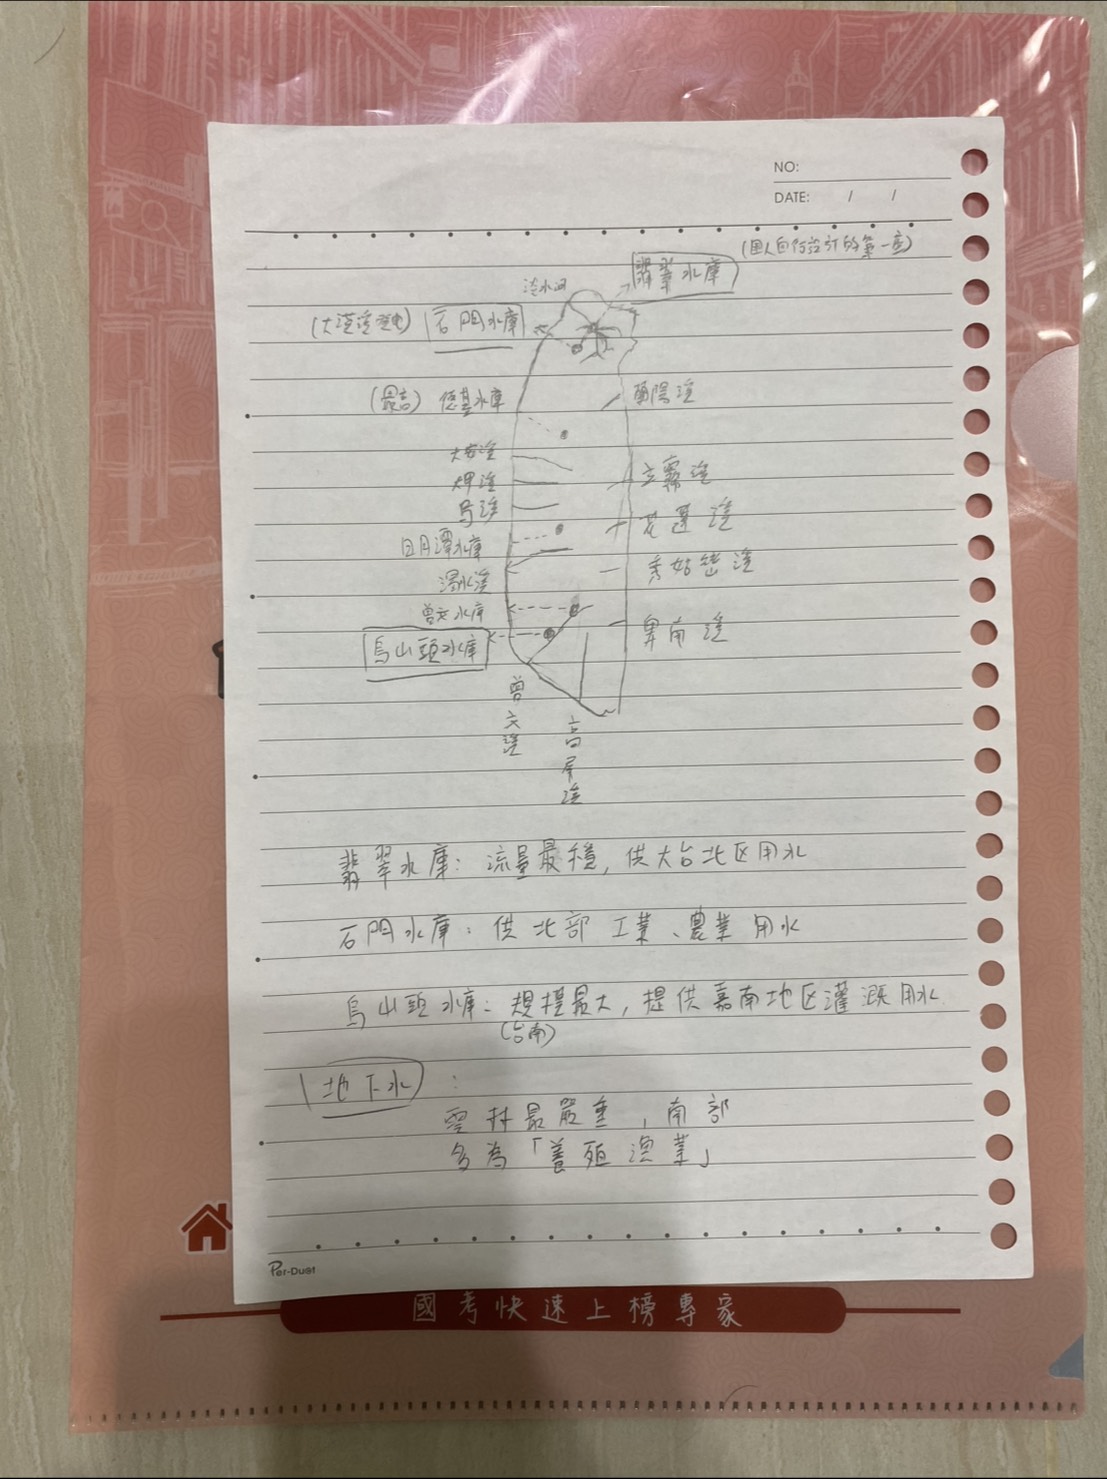 NO:
DATE: / /
(国人自行設計的第一座)
翡翠水庫
淡水河
(大漢溪發電) 石門水庫
(最高) 德基水庫
蘭陽溪
大安溪
大甲溪
立霧溪
烏溪
花蓮溪
日月潭水庫
秀姑巒溪
濁水溪
曾文水庫
卑南溪
烏山頭水庫
曾文溪
高屏溪
翡翠水庫: 流量最穩, 供大台北区用水
石門水庫: 供北部工業、農業用水
烏山頭水庫: 規模最大, 提供嘉南地区灌溉用水
(台南)
地下水 :
雲林最嚴重, 南部
多為「養殖漁業」
Per-Duet
國考快速上榜專家